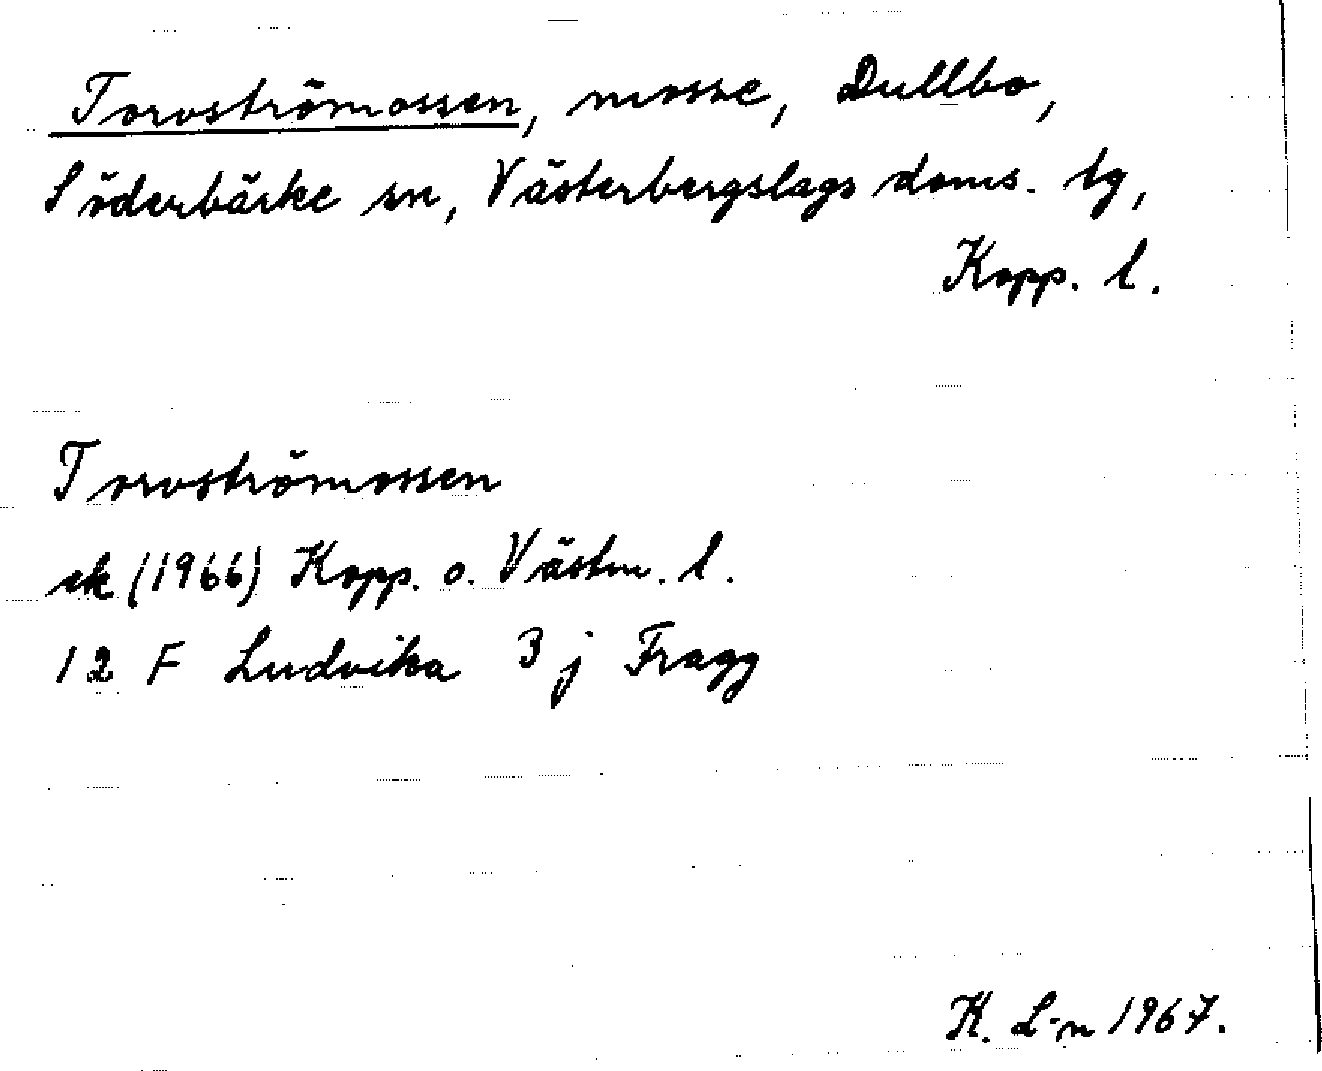 Torvströmossen, mosse, Dullbo,
Söderbärke sn, Västerbergslags doms. tg,
Kopp. l.
Torvströmossen
ek (1966) Kopp. o. Västm. l.
12 F Ludvika 3 j Fragg
K. L-n 1967.